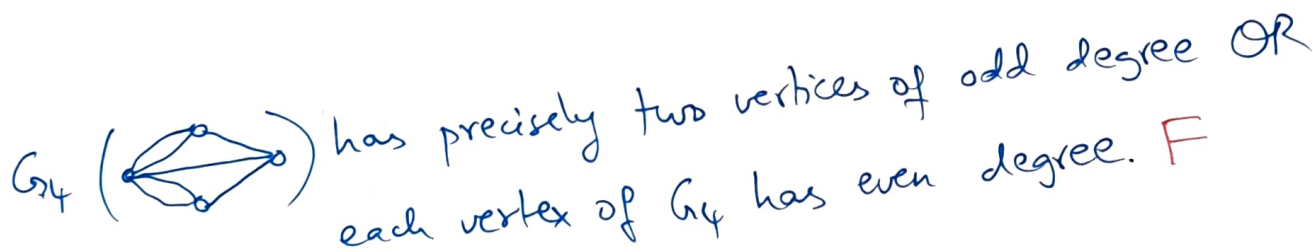 G4 ( ) has precisely two vertices of odd degree OR
each vertex of G4 has even degree. F